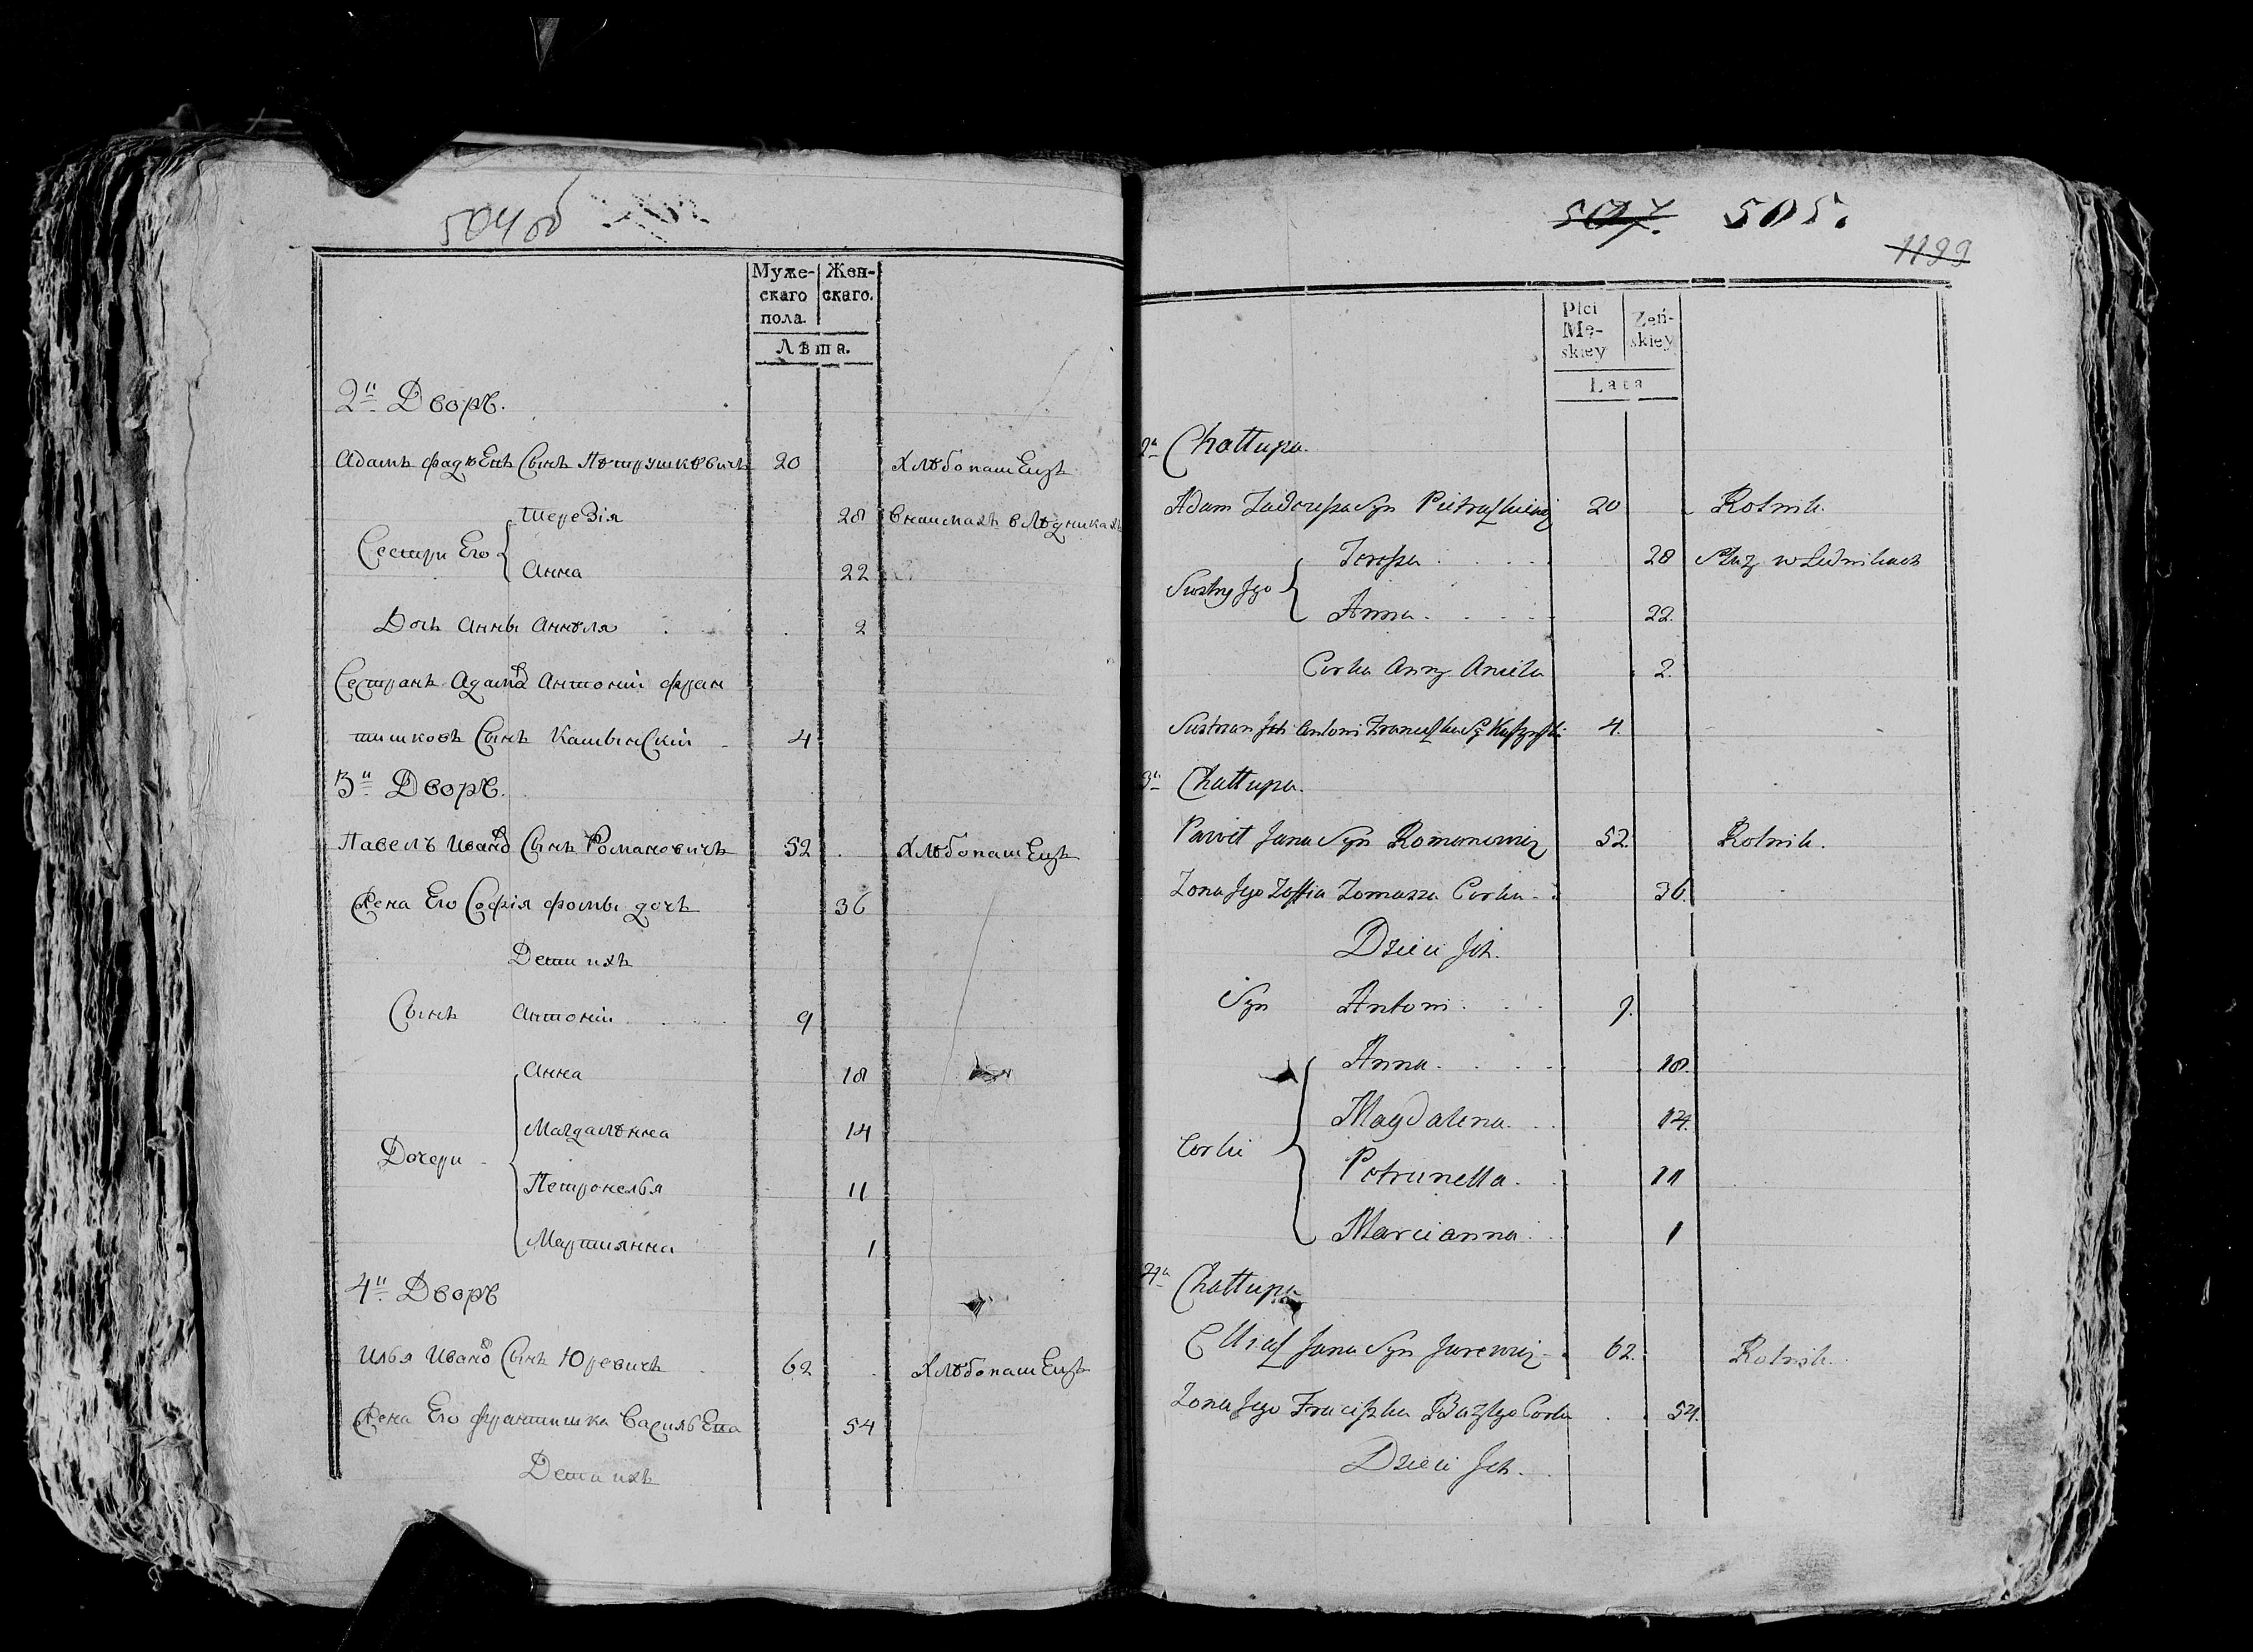 504 об
Муже-
скаго
пола.
Жен-
скаго.
Лѣта.
2й Дворъ.
Адамъ Фадѣевъ Сынъ Пѣтрушкѣвичъ 20 Хлѣбопашецъ
Сестры Его
Терезія 28 в наймахъ в Лѣдникахъ
Анна 22
Дочь Анны Анѣля 2
Сестранъ Адама Антоній Фран
тишковъ Сынъ 4
3й Дворъ.
Павелъ Иванов Сынъ Романовичъ 52 Хлѣбопашецъ
Жена Его Софія Фомы дочь 36
Дети ихъ
Сынъ Антоній 9
Дочери
Анна 18
Магдалѣнна 14
Петронелья 11
Мартиянна 1
4й Дворъ
Илья Иванов Сынъ Юревичъ 62 Хлѣбопашецъ
Жена Его Франтишка Васильева 54
Дети ихъ
507. 505.
1199
Płci
Mę-
skiey
Żeń-
skiey
Lata
2a Chałłupa.
Adam Tadeusza Syn Pietraszkiewicz 20 Rolnik.
Siostry Jego
Teressa 28 Służ. w Lednikach
Anna 22.
Corka Anny Aniela 2.
Siostrzan Ich Antoni Franciszka Sy 4.
3a Chałłupa.
Paweł Jana Syn Romanowicz 52. Rolnik.
Zona Jego Zoffia Tomasza Corka 36.
Dzieci Ich.
Syn Antoni 9.
Corki
Anna 18.
Magdalena 14.
Petrunella 11
Marcianna 1
4a Chałłupa
Eliasz Jana Syn Jurewicz 62. Rolnik.
Zona Jego Franciszka Bazylego Corka 54.
Dzieci Ich.